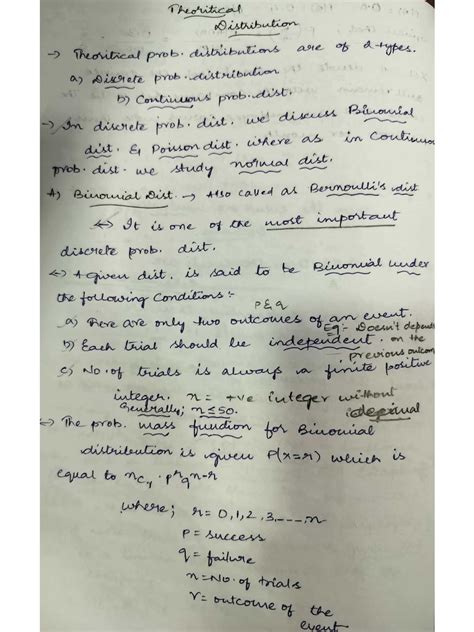 Theoritical
Distribution
→ Theoritical prob. distributions are of 2-types.
a) Discrete prob. distribution
b) Continuous prob. dist.
→ In discrete prob. dist. we discuss Binomial
dist. & Poisson dist. where as in Continuous
prob. dist. we study normal dist.
A) Binomial Dist. → Also called as Bernoulli's dist
↔ It is one of the most important
discrete prob. dist.
↔ A given dist. is said to be Binomial under
the following Conditions:-
P & q
a) There are only two outcomes of an event.
Eg:- Doesn't depend
b) Each trial should be independent. on the
previous outcom
c) No. of trials is always a finite positive
integer. n = +ve integer without
Generally; n ≤ 50. decimal
↔ The prob. mass function for Binomial
distribution is given P(x=r) which is
equal to nCr . p^r q^n-r
where; r = 0,1,2,3,----,n
P = success
q = failure
n = No. of trials
r = outcome of the
event